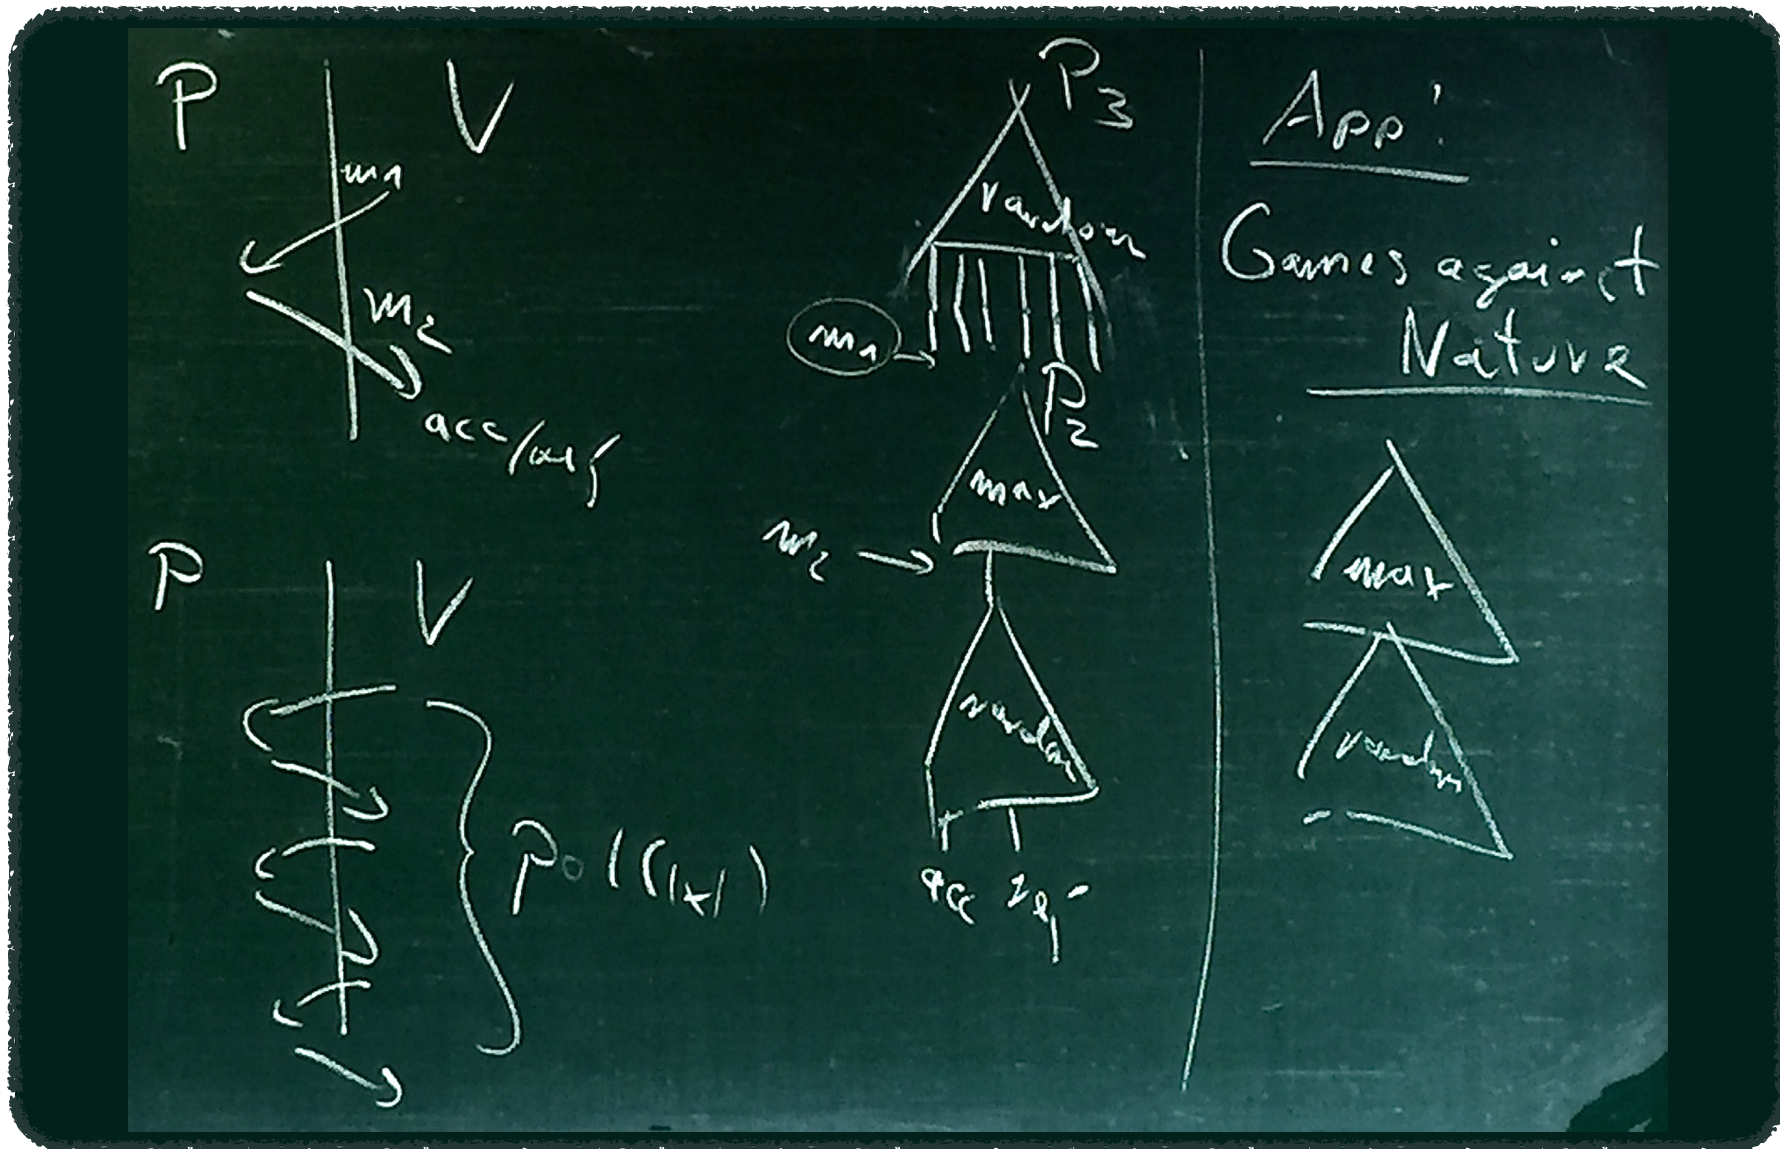 P V
m1
m2
acc/rej
P V
poly(|x|)
P3
random
m1
P2
max
m2
random
acc rej
App:
Games against
Nature
max
random